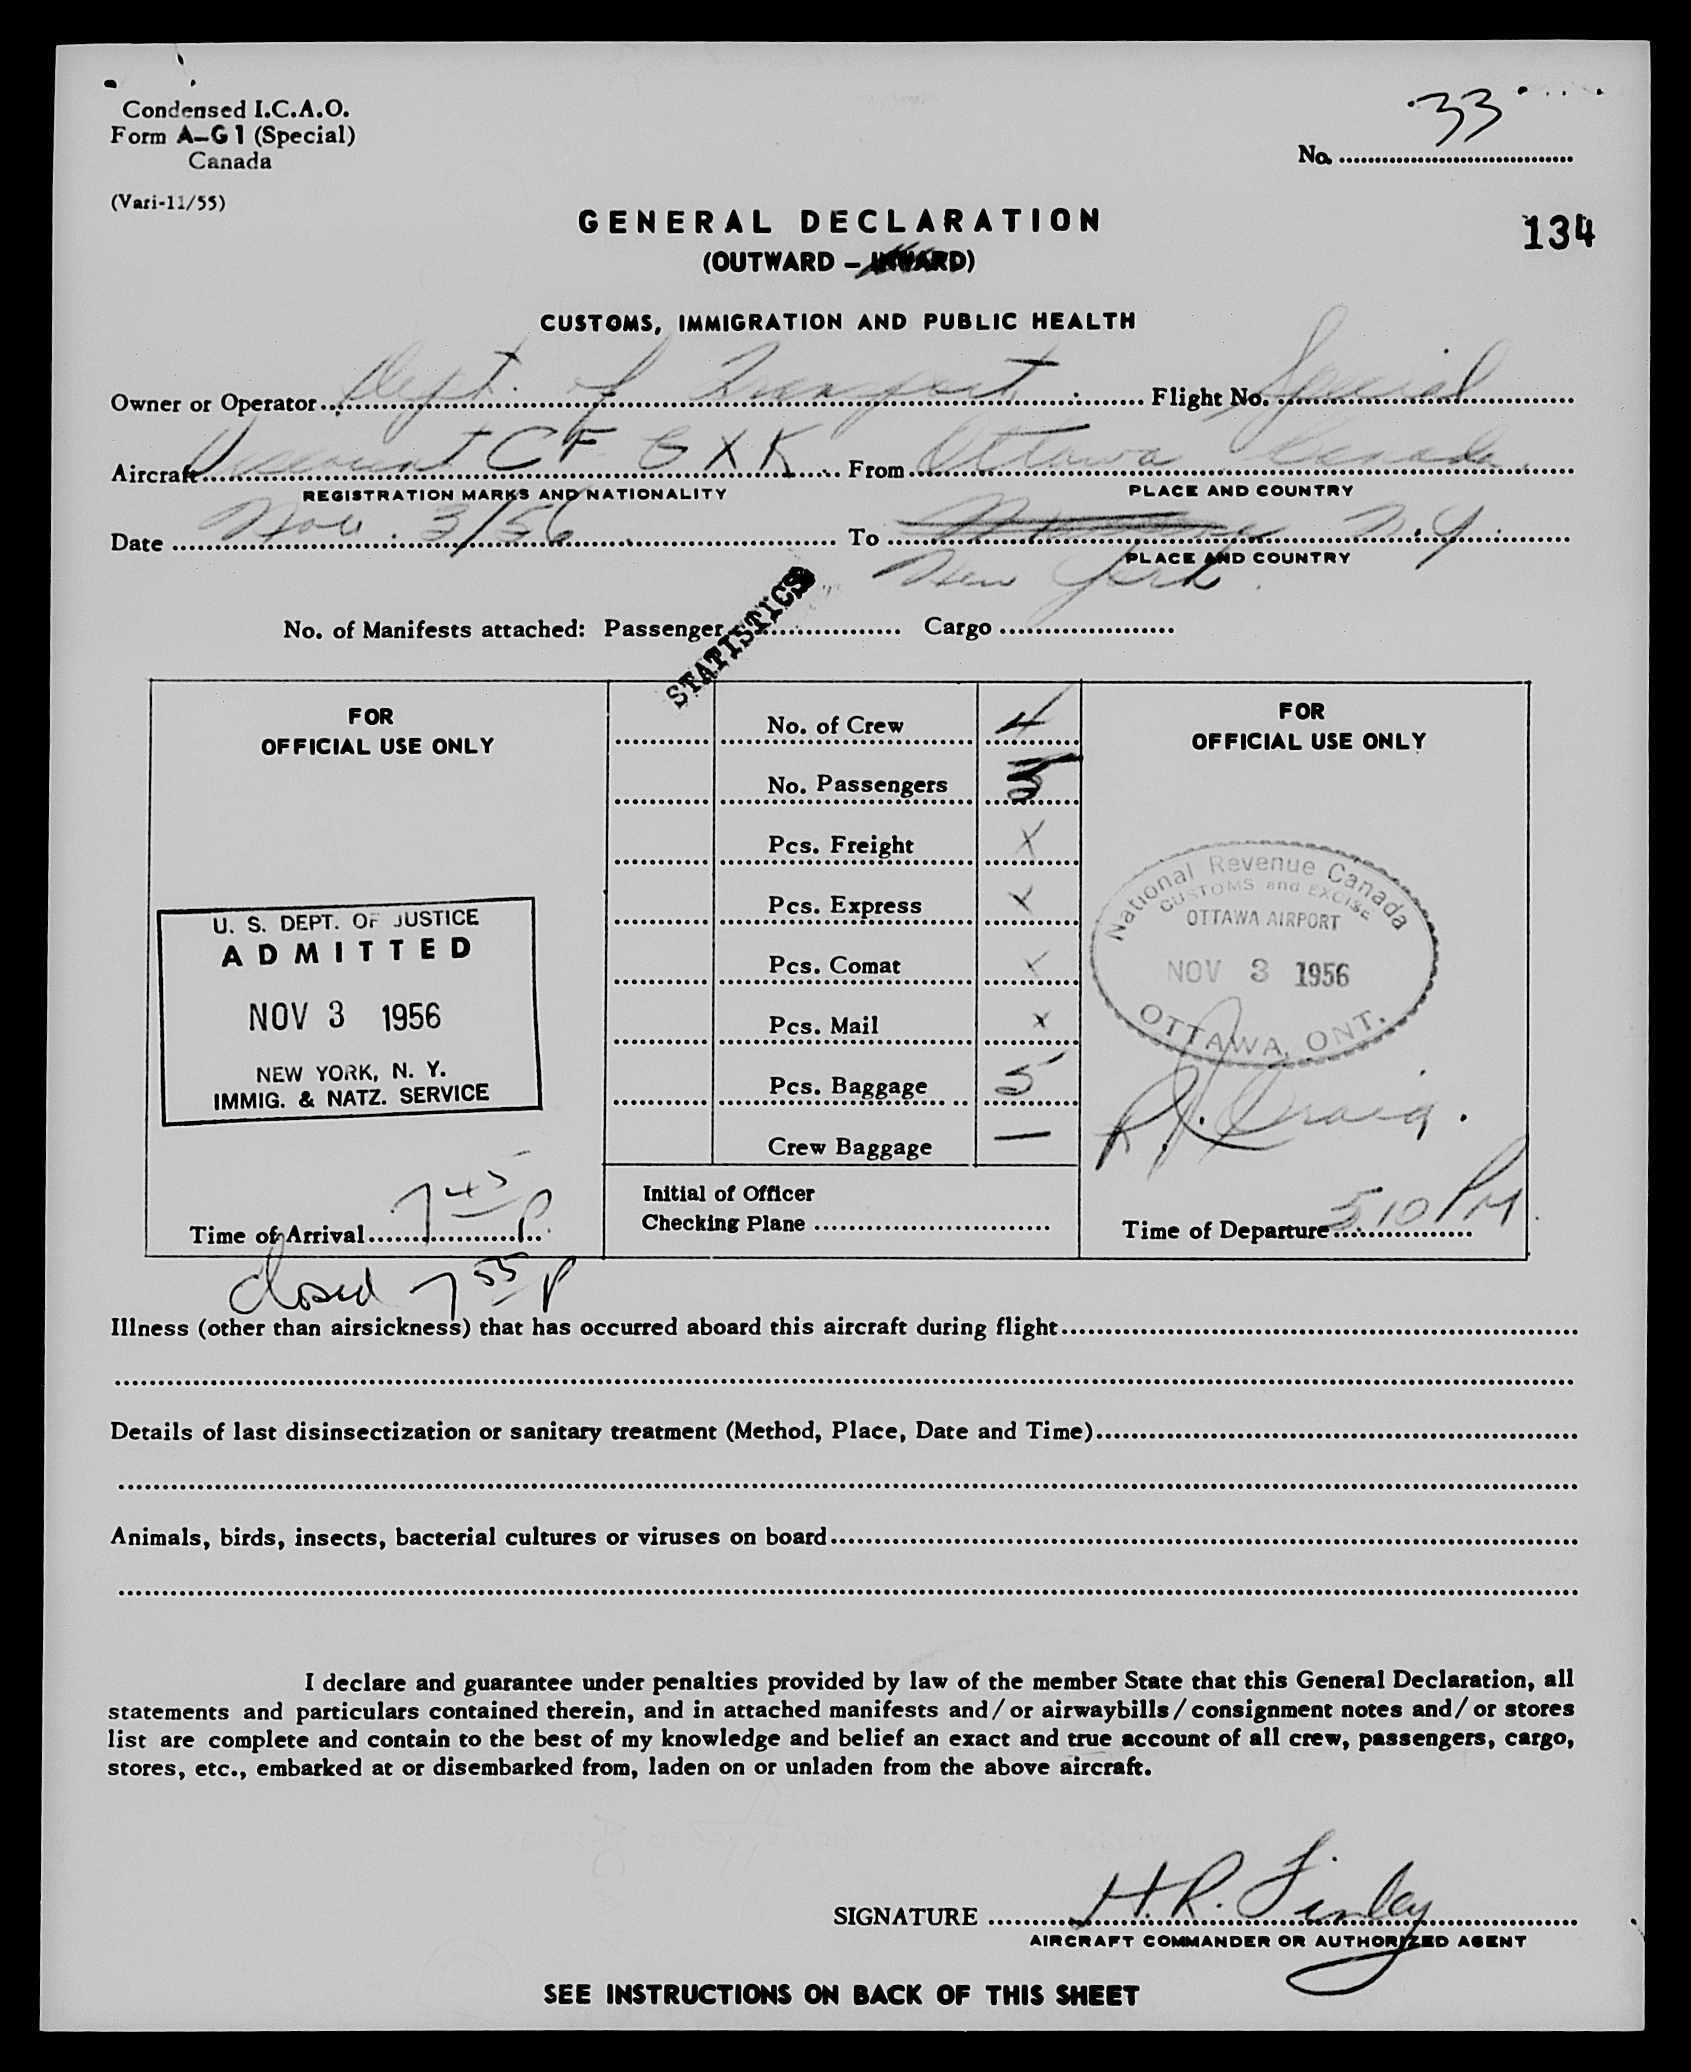 Condensed I.C.A.O.
Form A-G1 (Special)
Canada
(Vari-11/55)
33
No. ................................
134
GENERAL DECLARATION
(OUTWARD – INWARD)
CUSTOMS, IMMIGRATION AND PUBLIC HEALTH
Owner or Operator Dept. of Transport Flight No. Special
Aircraft Viscount CF GXK From Ottawa Canada
REGISTRATION MARKS AND NATIONALITY PLACE AND COUNTRY
Date Nov. 3/56 To N.Y.
PLACE AND COUNTRY
New York
STATISTICS
No. of Manifests attached: Passenger.................... Cargo.....................
FOR
OFFICIAL USE ONLY
U. S. DEPT. OF JUSTICE
ADMITTED
NOV 3 1956
NEW YORK, N. Y.
IMMIG. & NATZ. SERVICE
Time of Arrival 7 45 P.
closed 7 55 P
No. of Crew 4
No. Passengers 5
Pcs. Freight X
Pcs. Express X
Pcs. Comat X
Pcs. Mail X
Pcs. Baggage 5
Crew Baggage —
Initial of Officer
Checking Plane .............................
FOR
OFFICIAL USE ONLY
National Revenue Canada
CUSTOMS and EXCISE
OTTAWA AIRPORT
NOV 3 1956
OTTAWA, ONT.
R.J. Craig.
Time of Departure 5 10 PM
Illness (other than airsickness) that has occurred aboard this aircraft during flight
Details of last disinsectization or sanitary treatment (Method, Place, Date and Time)
Animals, birds, insects, bacterial cultures or viruses on board
I declare and guarantee under penalties provided by law of the member State that this General Declaration, all
statements and particulars contained therein, and in attached manifests and/or airwaybills/consignment notes and/or stores
list are complete and contain to the best of my knowledge and belief an exact and true account of all crew, passengers, cargo,
stores, etc., embarked at or disembarked from, laden on or unladen from the above aircraft.
SIGNATURE H.R. Finley
AIRCRAFT COMMANDER OR AUTHORIZED AGENT
SEE INSTRUCTIONS ON BACK OF THIS SHEET